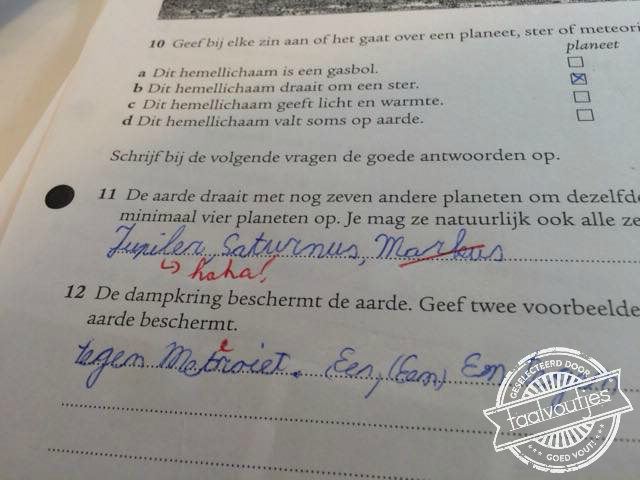 10 Geef bij elke zin aan of het gaat over een planeet, ster of meteori
planeet
a Dit hemellichaam is een gasbol.
b Dit hemellichaam draait om een ster.
c Dit hemellichaam geeft licht en warmte.
d Dit hemellichaam valt soms op aarde.
Schrijf bij de volgende vragen de goede antwoorden op.
11 De aarde draait met nog zeven andere planeten om dezelfde
minimaal vier planeten op. Je mag ze natuurlijk ook alle ze
Jupiler, Saturnus, Markus
haha!
12 De dampkring beschermt de aarde. Geef twee voorbeelde
aarde beschermt.
tegen Een, (Een) Em
GESELECTEERD DOOR
taalvoutjes
GOED VOUT!